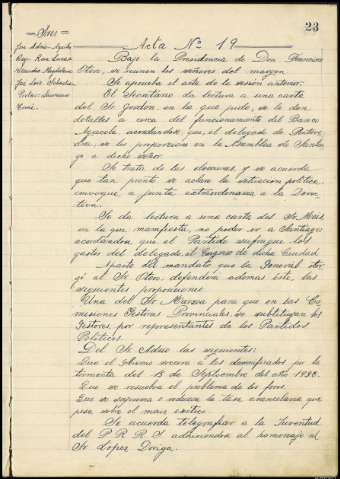 23
= Sres =
Acta Nº 19
Bajo la Presidencia de Don Francisco
Oton, se reunen los señores del margen
Se aprueba el acta de la sesión anterior.
El Secretario da lectura a una carta
del Sr Gordon, en la que pide, se le den
detalles a cerca del funcionamiento del Banco
Agricola acordandose que, el delegado de
se los proporcione en la Asamblea de Santia-
go a dicho señor.
Se trata de las elecciones y se acuerda
que tan pronto se aclare la situacion politica,
convoque a junta extraordinaria a la Direc-
tiva.
Se da lectura a una carta del Sr
en la que manifiesta, no poder ir a Santiago
acordandose que el Partido sufrague los
gastos del delegado al Congreso de dicha Ciudad
Aparte del mandato que la General
gó al Sr Oton, defenderá ademas este, las
siguientes proposiciones
Una del Sr para que en las Co-
misiones Gestoras Provinciales se substituyan los
Gestores, por representantes de los Partidos
Politicos.
Del Sr Adrio las siguientes:
Que el Estado socorra a los damnificados por la
tormenta del 13 de Septiembre del año 1933.
Que se resuelva el problema de los foros.
Que se suprima o reduzca la tasa arancelaria que
pesa sobre el maiz exotico.
Se acuerda telegrafiar a la Juventud
del P R R S adhiriendose al homenaje al
Sr Lopez Doriga.